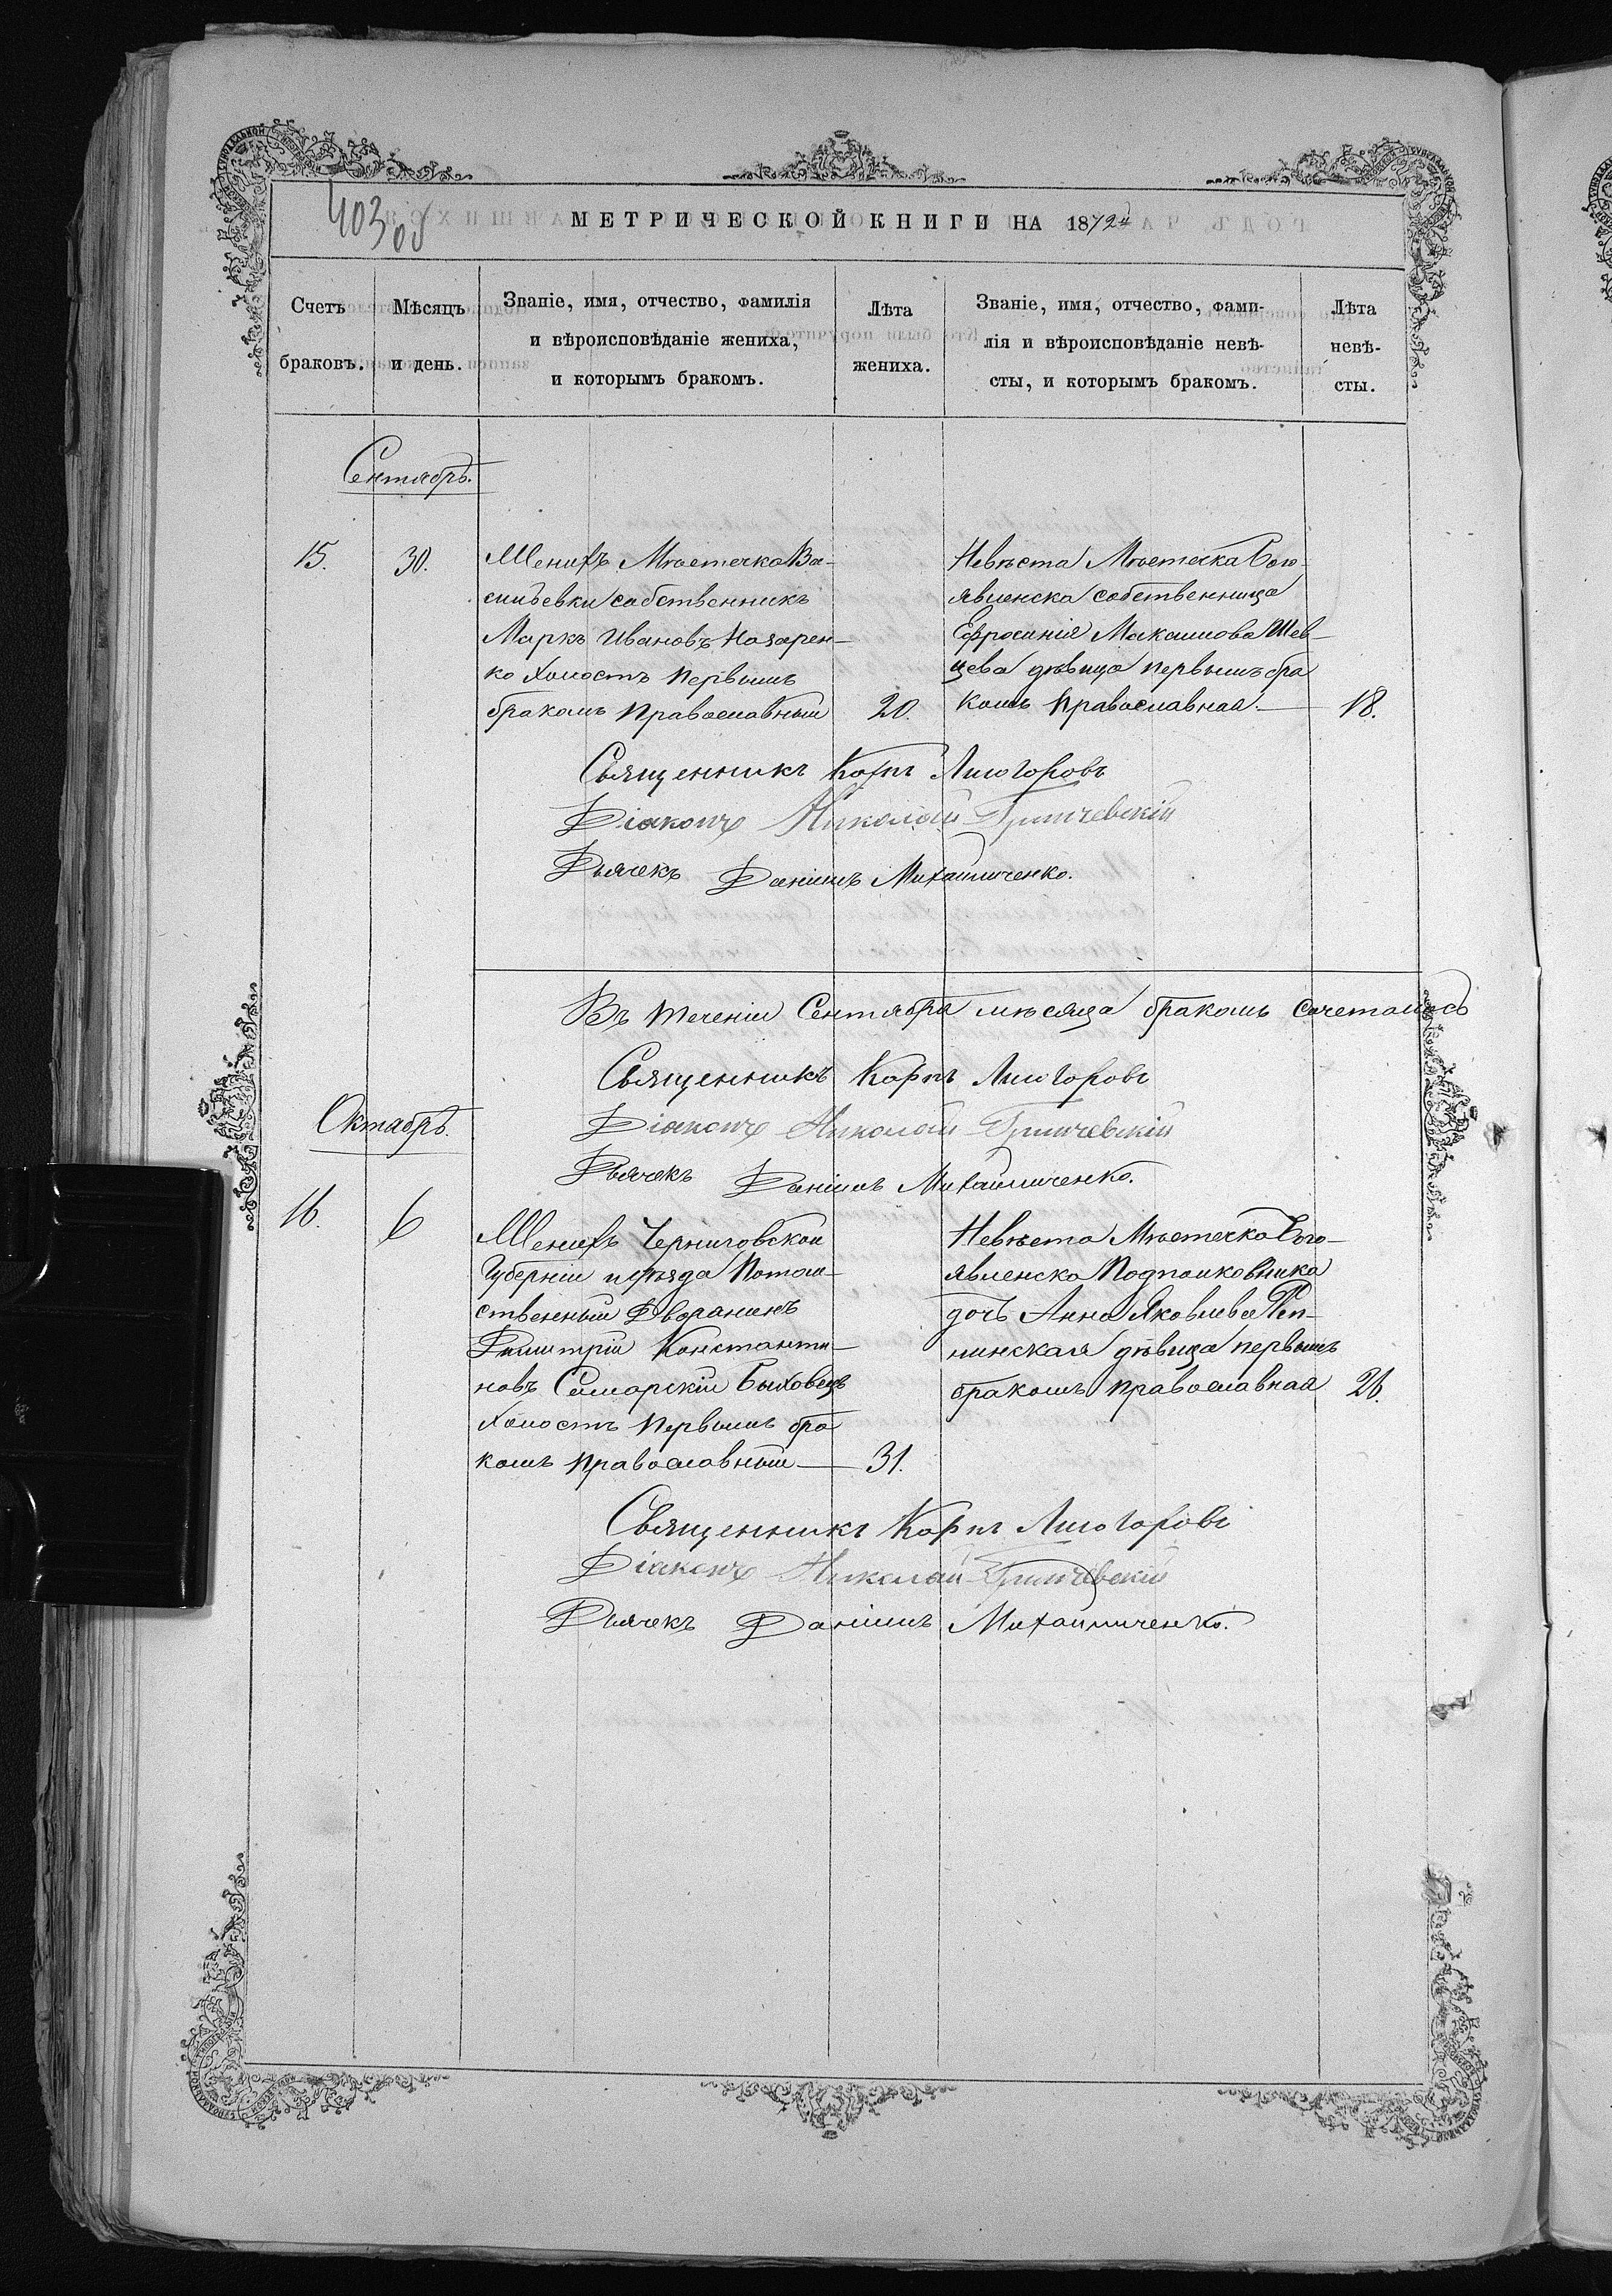 403 об
МЕТРИЧЕСКОЙ КНИГИ НА 1872й
Счетъ браковъ.
Мѣсяцъ и день.
Званіе, имя, отчество, фамилія
и вѣроисповѣданіе жениха,
и которымъ бракомъ.
Лѣта жениха.
Званіе, имя, отчество, фами-
лія и вѣроисповѣданіе невѣ-
сты, и которымъ бракомъ.
Лѣта невѣ-
сты.
Сентябрь.
15.
30.
Женихъ Мѣстечка Ва-
сильевки собственникъ
Маркъ Ивановъ Назарен-
ко холостъ первымъ
бракомъ православный
20.
Невѣста Мѣстечка Бого-
явленска собственница
Ефросинія Максимова Шев-
цева дѣвица первымъ бра
комъ православная.
18.
Священникъ Карпъ Лиогоровъ
Діаконъ Николай Гриневскій
Дьячекъ Даніилъ Михайличенко.
Въ теченіи Сентября мѣсяца бракомъ сочеталось
Священникъ Карпъ Лиогоровъ
Діаконъ Николай Гриневскій
Дьячекъ Даніилъ Михайличенко.
Октябрь.
16.
6
Женихъ Черниговской
Губерніи и уѣзда Потом-
ственный Дворянинъ
Димитрій Константи-
новъ Самарскій Быховецъ
холостъ первымъ бра
комъ православный
31.
Невѣста Мѣстечка Бого-
явленска Подполковника
дочь Анна Яковлева Реп-
нинская дѣвица первымъ
бракомъ православная
26.
Священникъ Карпъ Лиогоровъ
Діаконъ Николай Гриневскій
Дьячекъ Даніилъ Михайличенко.